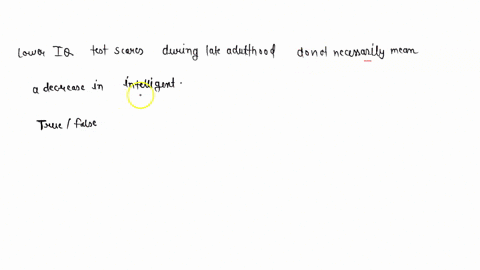 Lower IQ test scores during late adulthood donot necessarily mean
a decrease in intelligent.
True / false